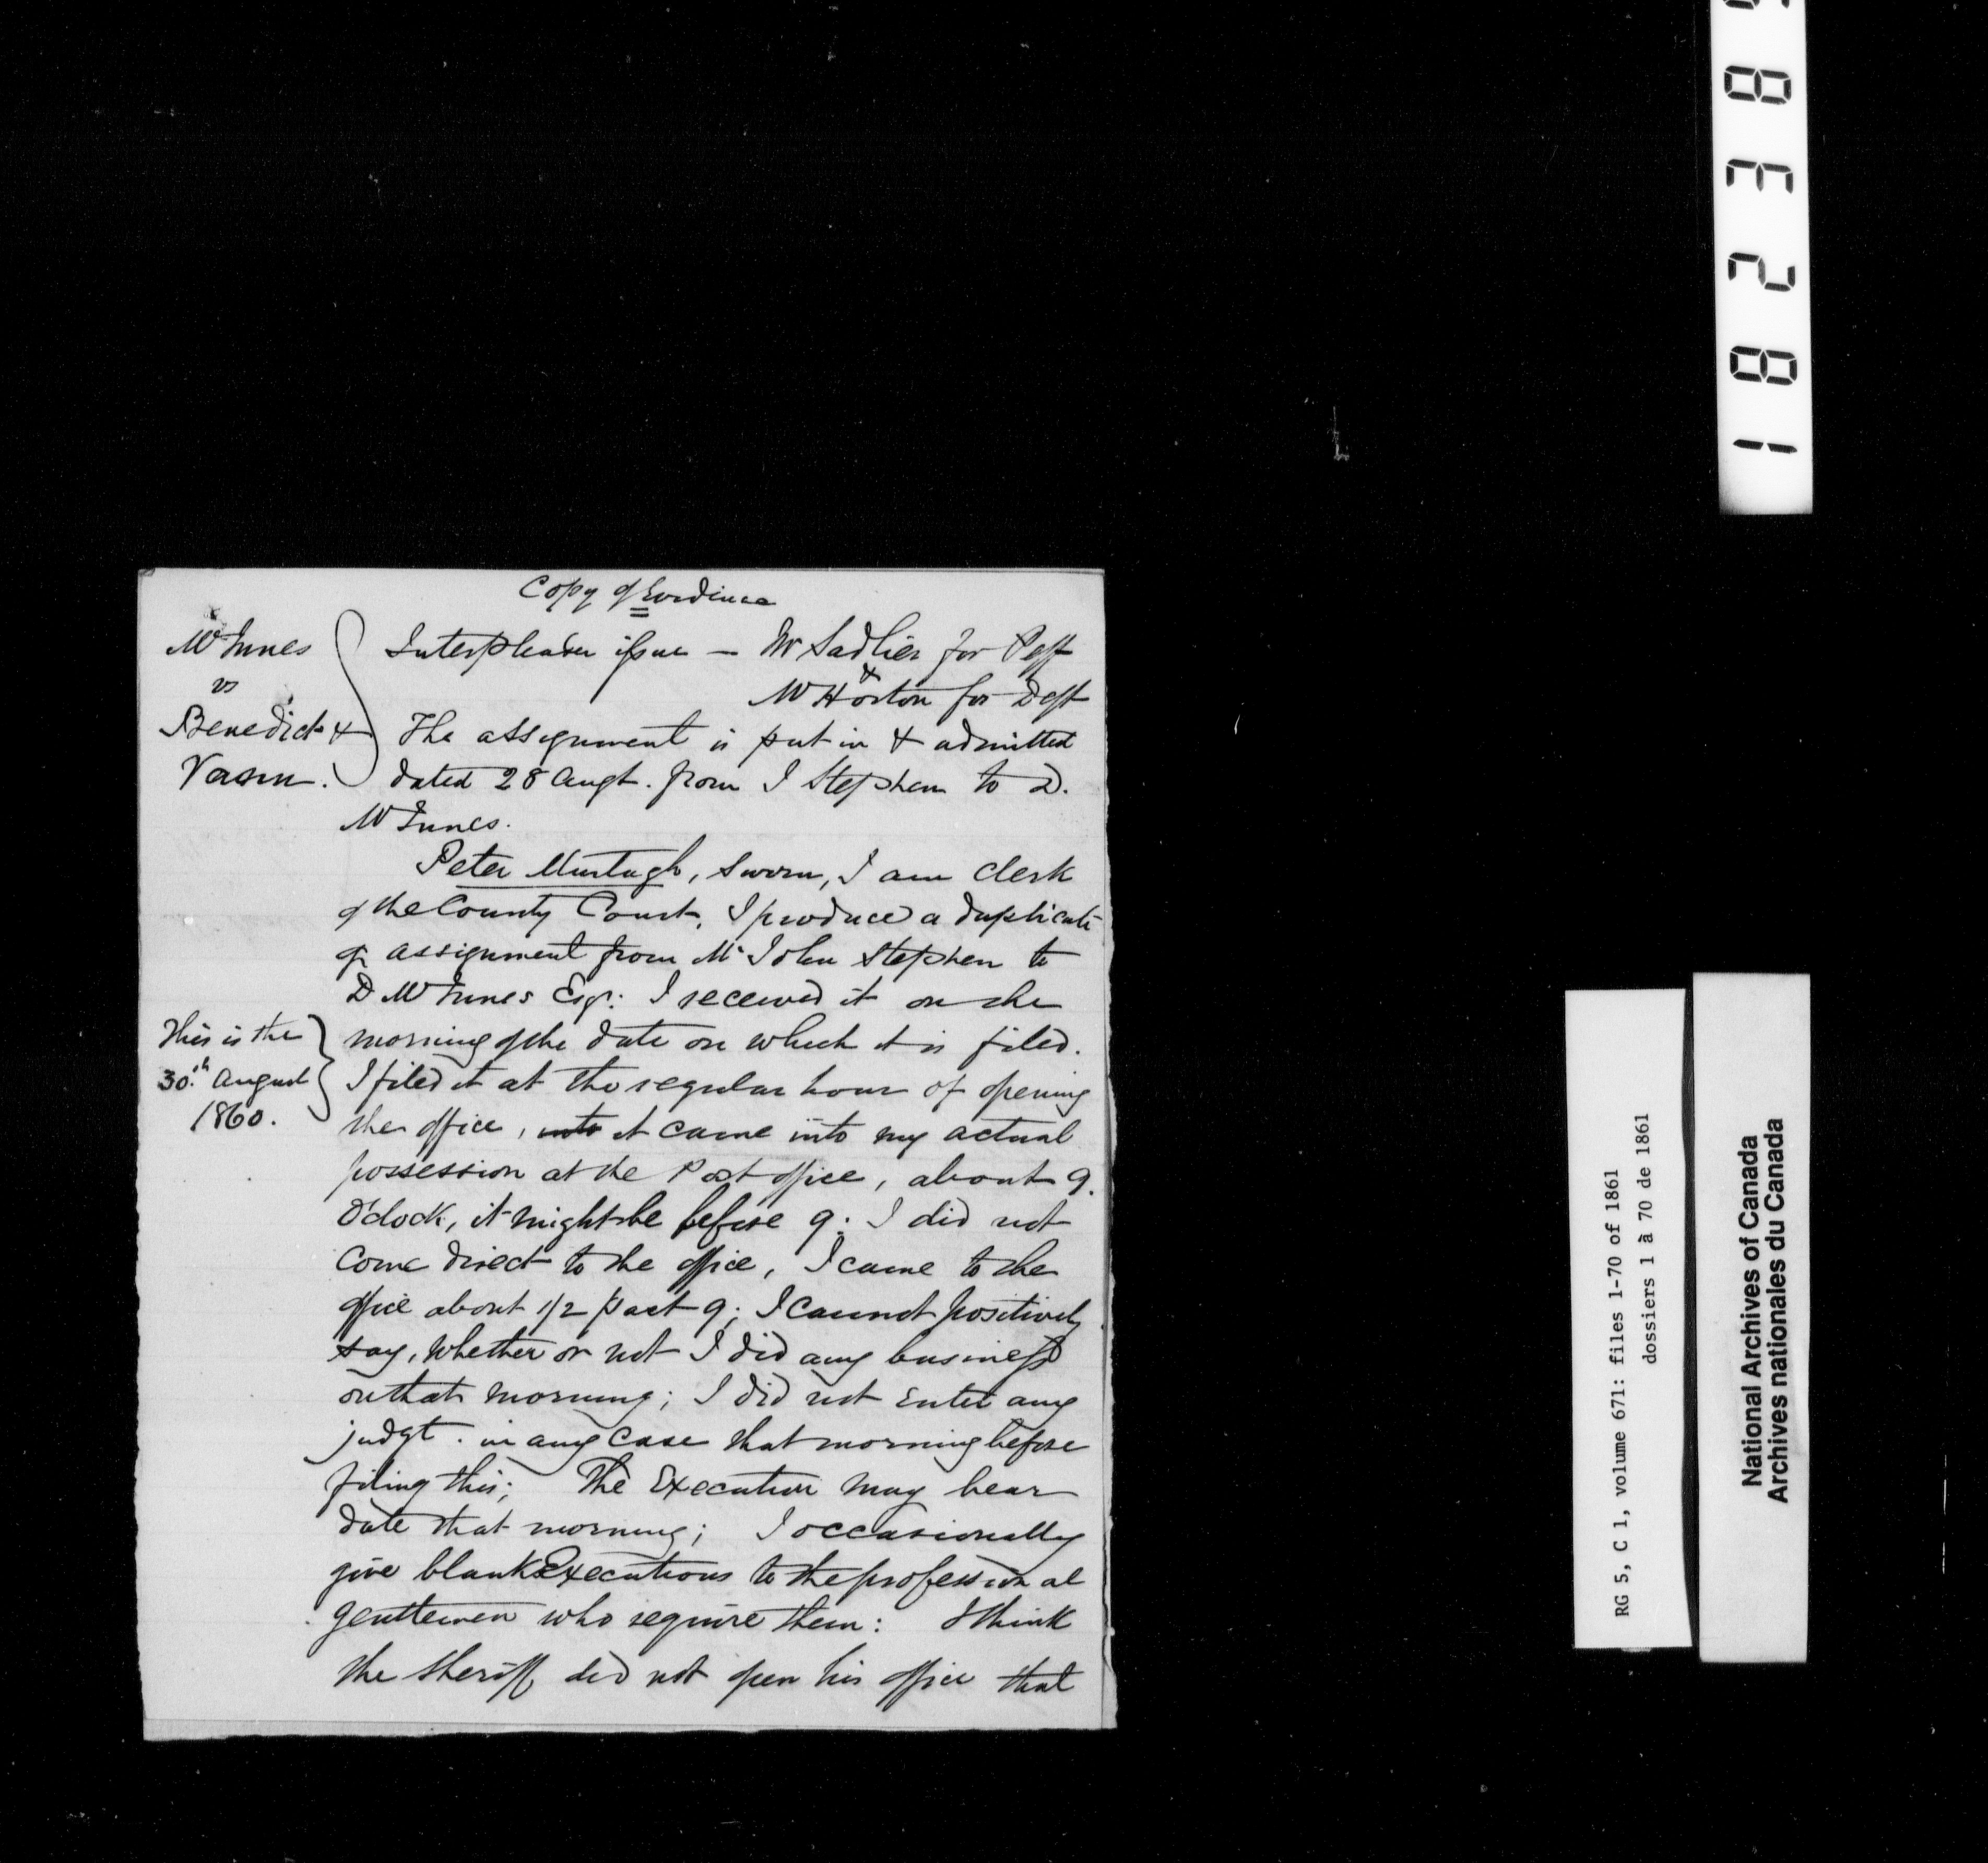 Copy of Evidence
McInnes
vs
Benedict &
Vason.
Interpleader issue — Mr Sadlier for Plff
&
McHorton for Deft
The assignment is put in & admitted
dated 28 Augt. from J Stephen to D.
McInnes.
Peter Murtagh, sworn, I am clerk
of the County Court, I produce a duplicate
of assignment from Mr John Stephen to
D McInnes Esqr: I received it on the
This is the
30th August
1860.
morning of the date on which it is filed.
I filed it at the regular hour of opening
the office, into it came into my actual
possession at the Post office, about 9.
O'clock, it might be before 9: I did not
come direct to the office, I came to the
office about 1/2 past 9; I cannot positively
say, whether or not I did any business
on that morning; I did not enter any
judgt. in any case that morning before
filing this; The Execution may bear
date that morning; I occasionally
give blank Executions to the professional
gentlemen who require them: I think
the Sheriff did not open his office that
RG 5, C 1, volume 671: files 1-70 of 1861
dossiers 1 à 70 de 1861
National Archives of Canada
Archives nationales du Canada
1 8 2 3 8